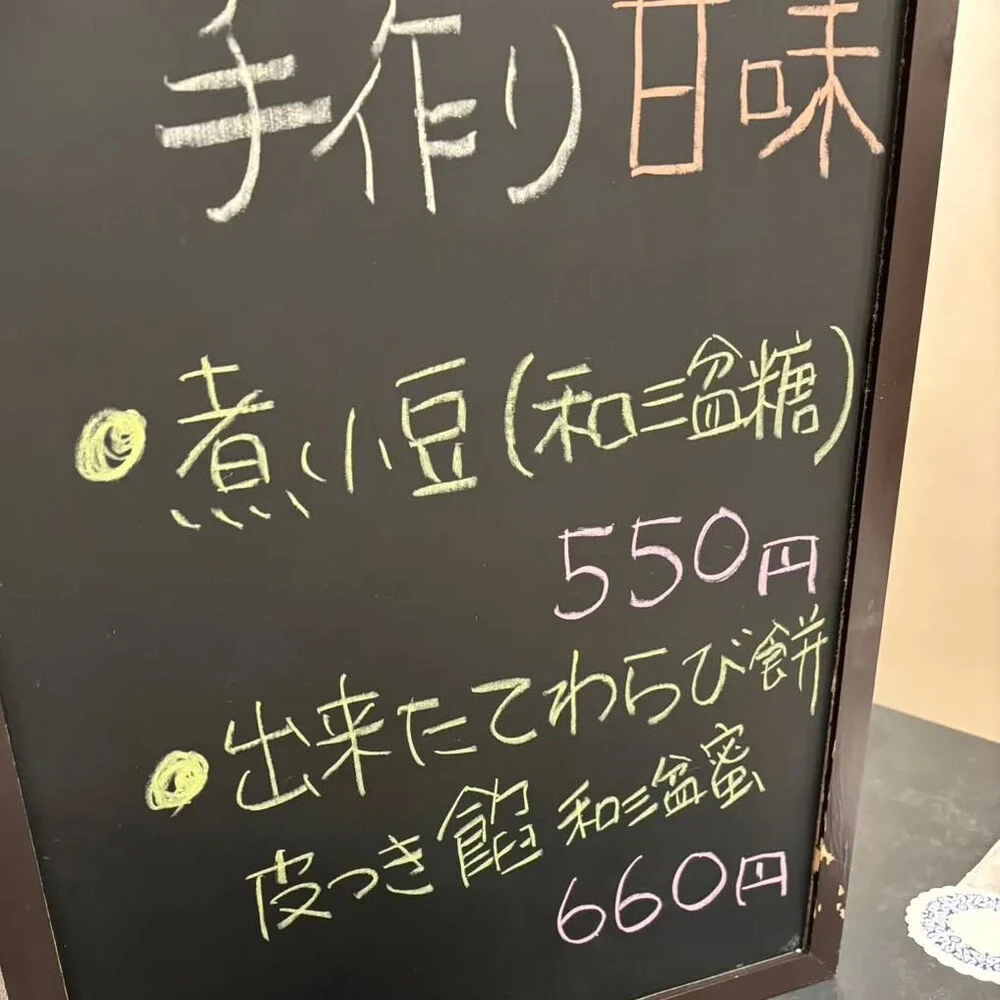 手作り甘味
煮小豆(和三盆糖)
550円
出来たてわらび餅
皮つき餡 和三盆蜜
660円